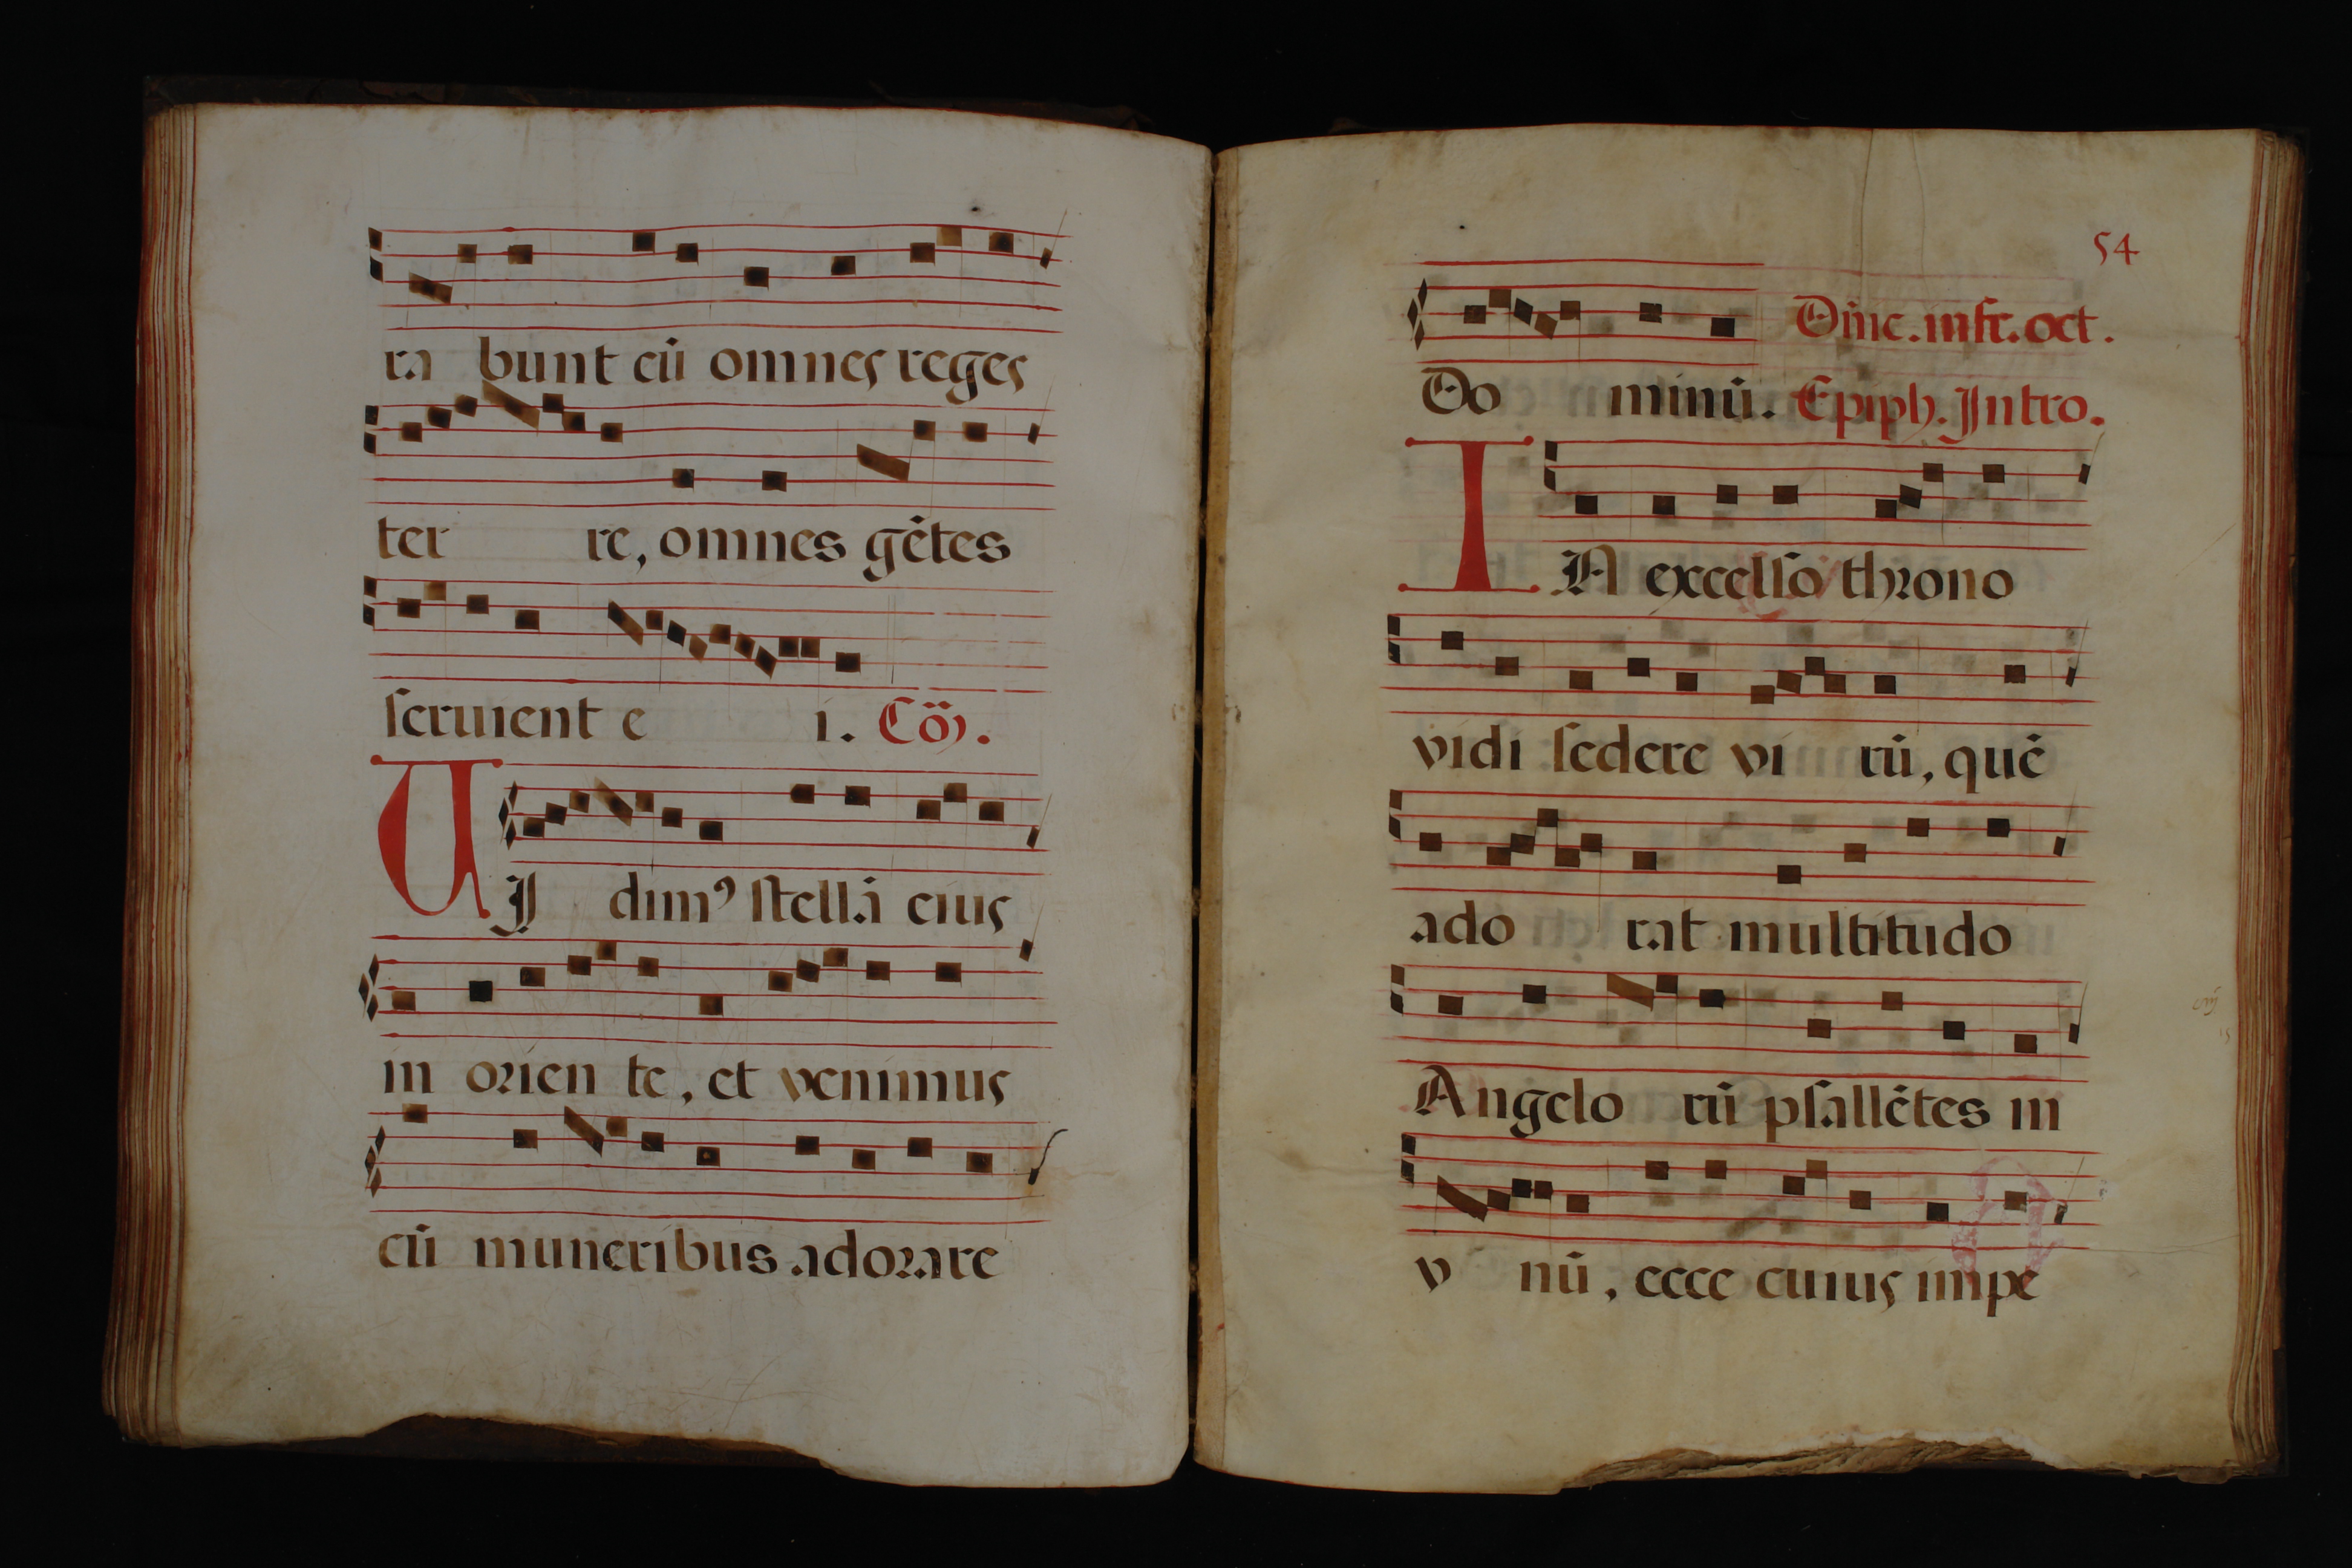 ra bunt eū omnes reges
ter re, omnes gētes
ſeruient e i. Cōͫ.
VI dimꝰ ſtellā eius
in orien te, et venimus
cū muneribus adorare
54
Do minū. Dn̄ic. infr. oct.
Epiph. Intro.
IN excelſo throno
vidi ſedere vi rū, quē
ado rat multitudo
Angelo rū pſallētes in
v nū, ecce cuius impe